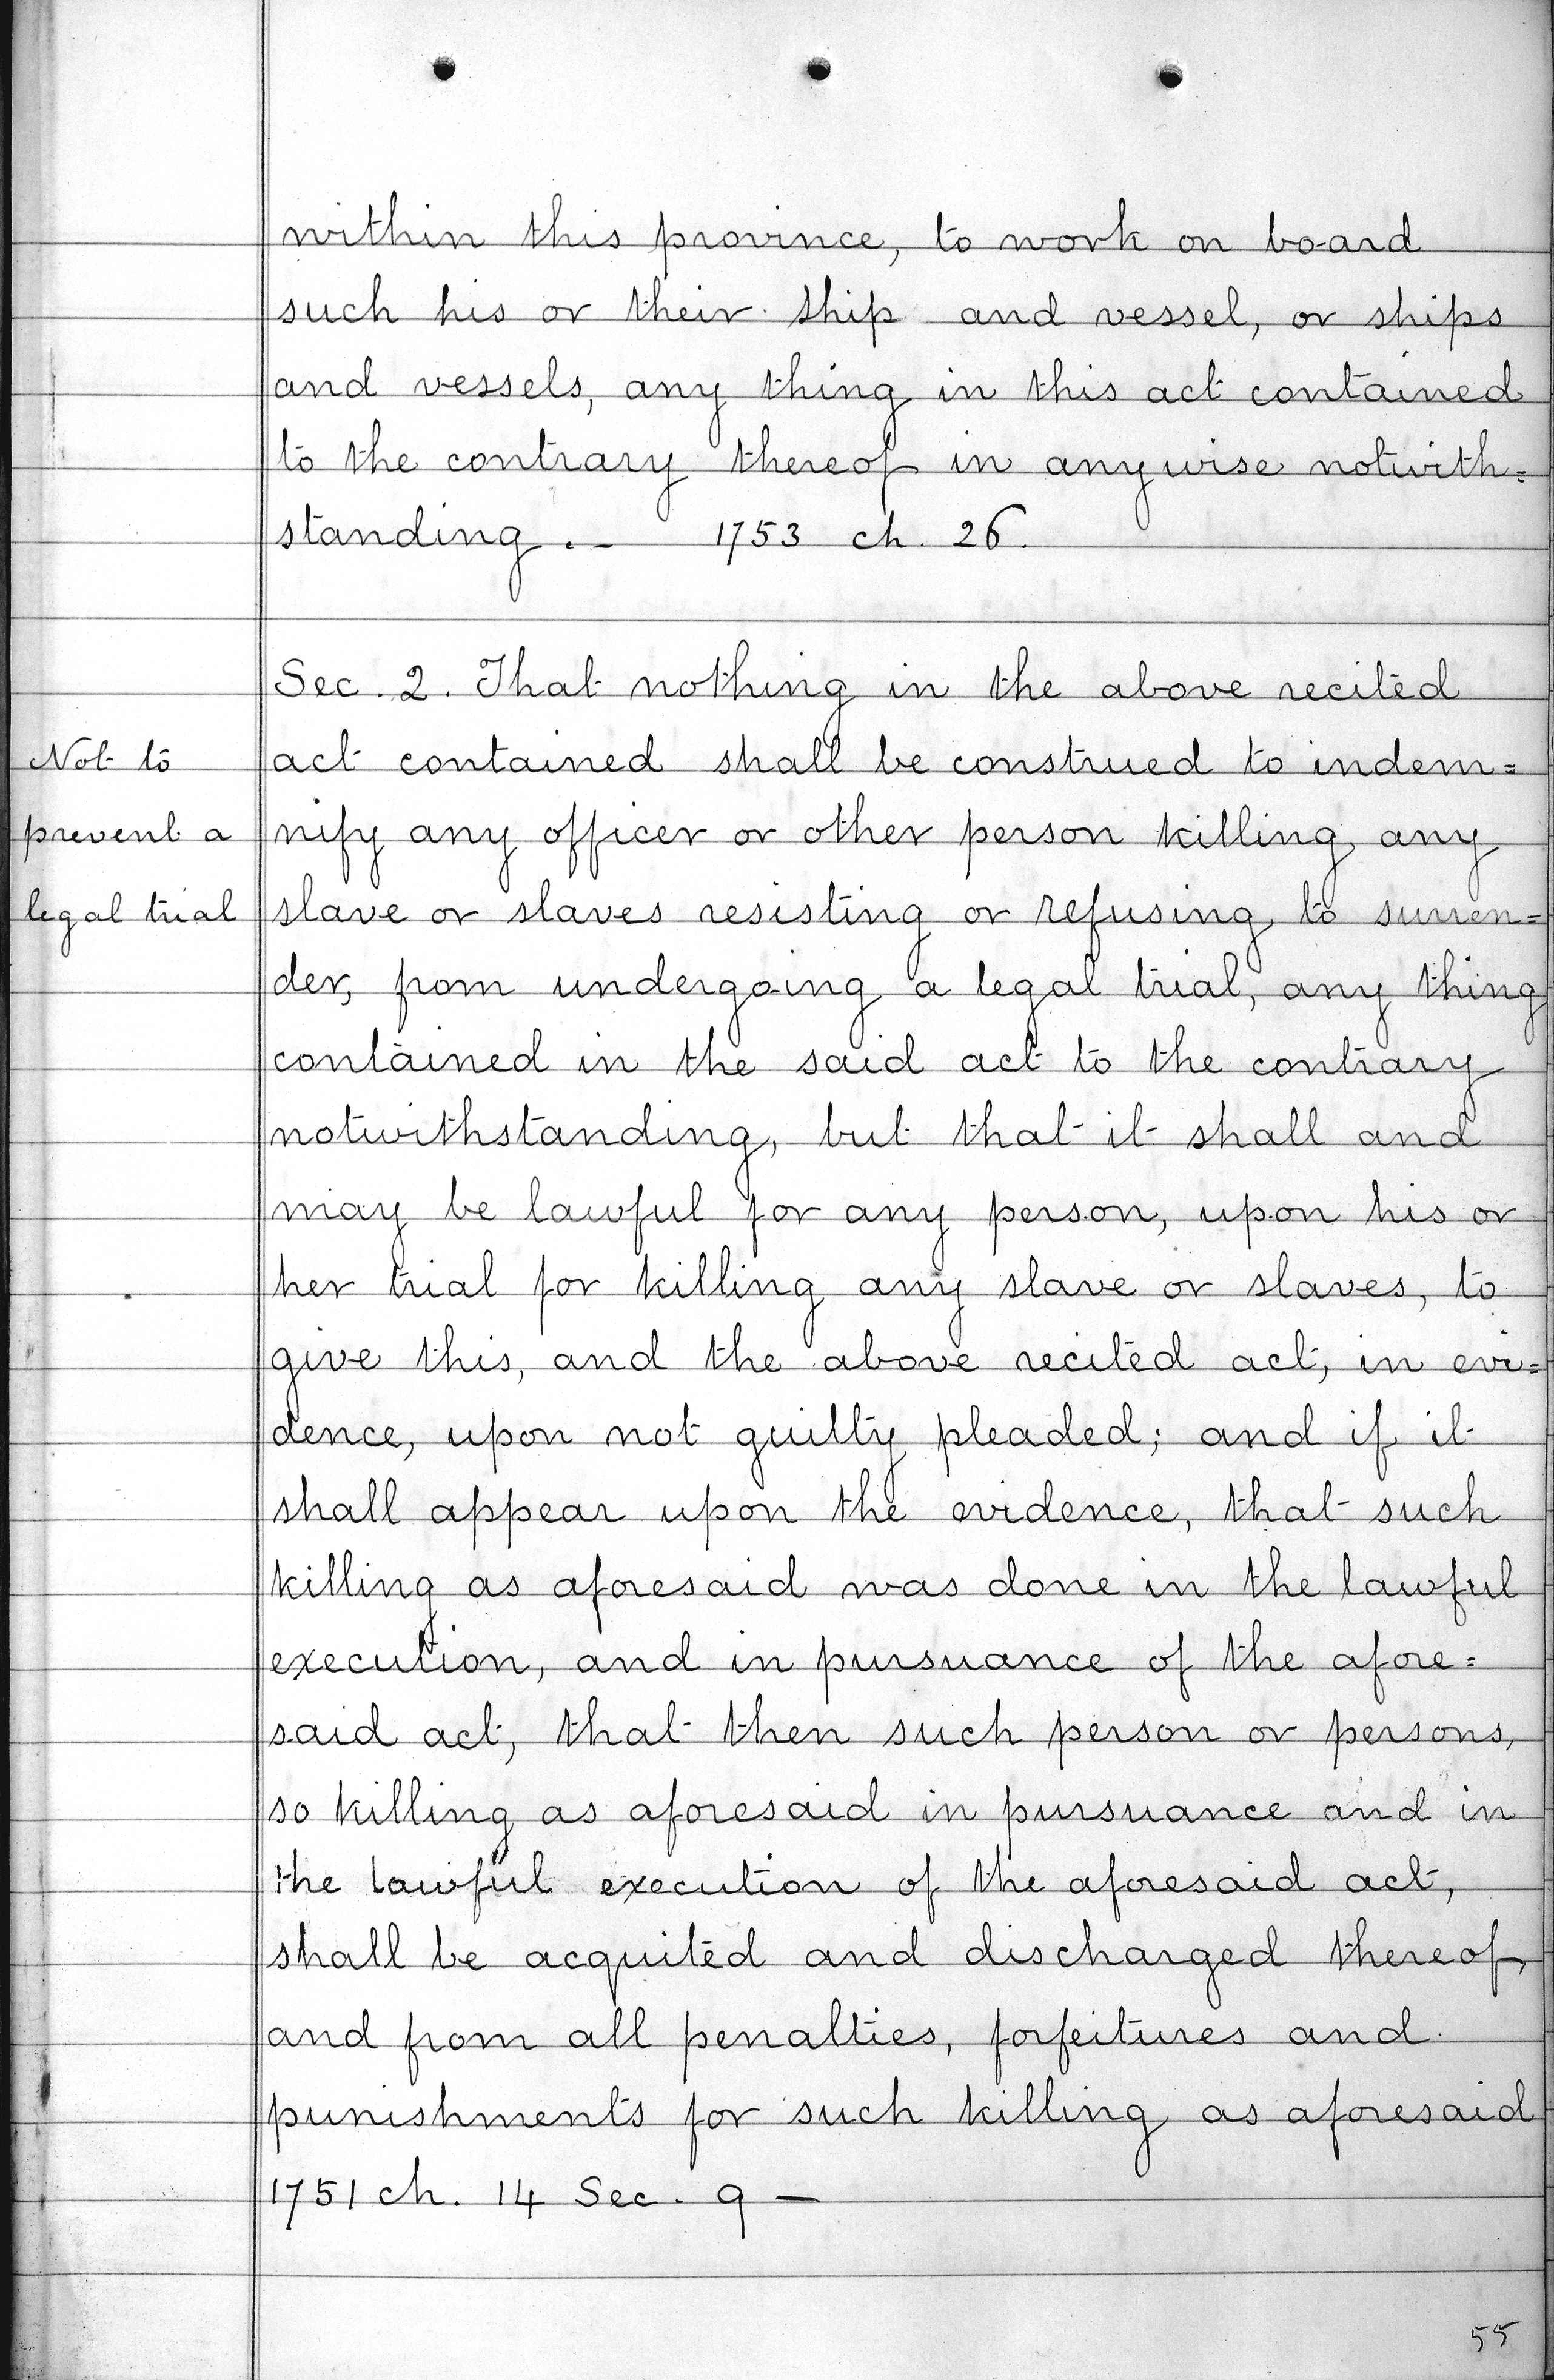 within this province, to work on board
such his or their ship and vessel, or ships
and vessels, any thing in this act contained
to the contrary thereof in anywise notwith=
standing. – 1753 ch. 26.
Sec. 2. That nothing in the above recited
Not to
act contained shall be construed to indem=
prevent a
nify any officer or other person killing any
legal trial
slave or slaves resisting or refusing to surren=
der, from undergoing a legal trial, any thing
contained in the said act to the contrary
notwithstanding, but that it shall and
may be lawful for any person, upon his or
her trial for killing any slave or slaves, to
give this, and the above recited act, in evi=
dence, upon not guilty pleaded; and if it
shall appear upon the evidence, that such
killing as aforesaid was done in the lawful
execution, and in pursuance of the afore=
said act, that then such person or persons,
so killing as aforesaid in pursuance and in
the lawful execution of the aforesaid act,
shall be acquited and discharged thereof,
and from all penalties, forfeitures and
punishments for such killing as aforesaid
1751 ch. 14 Sec. 9 –
55